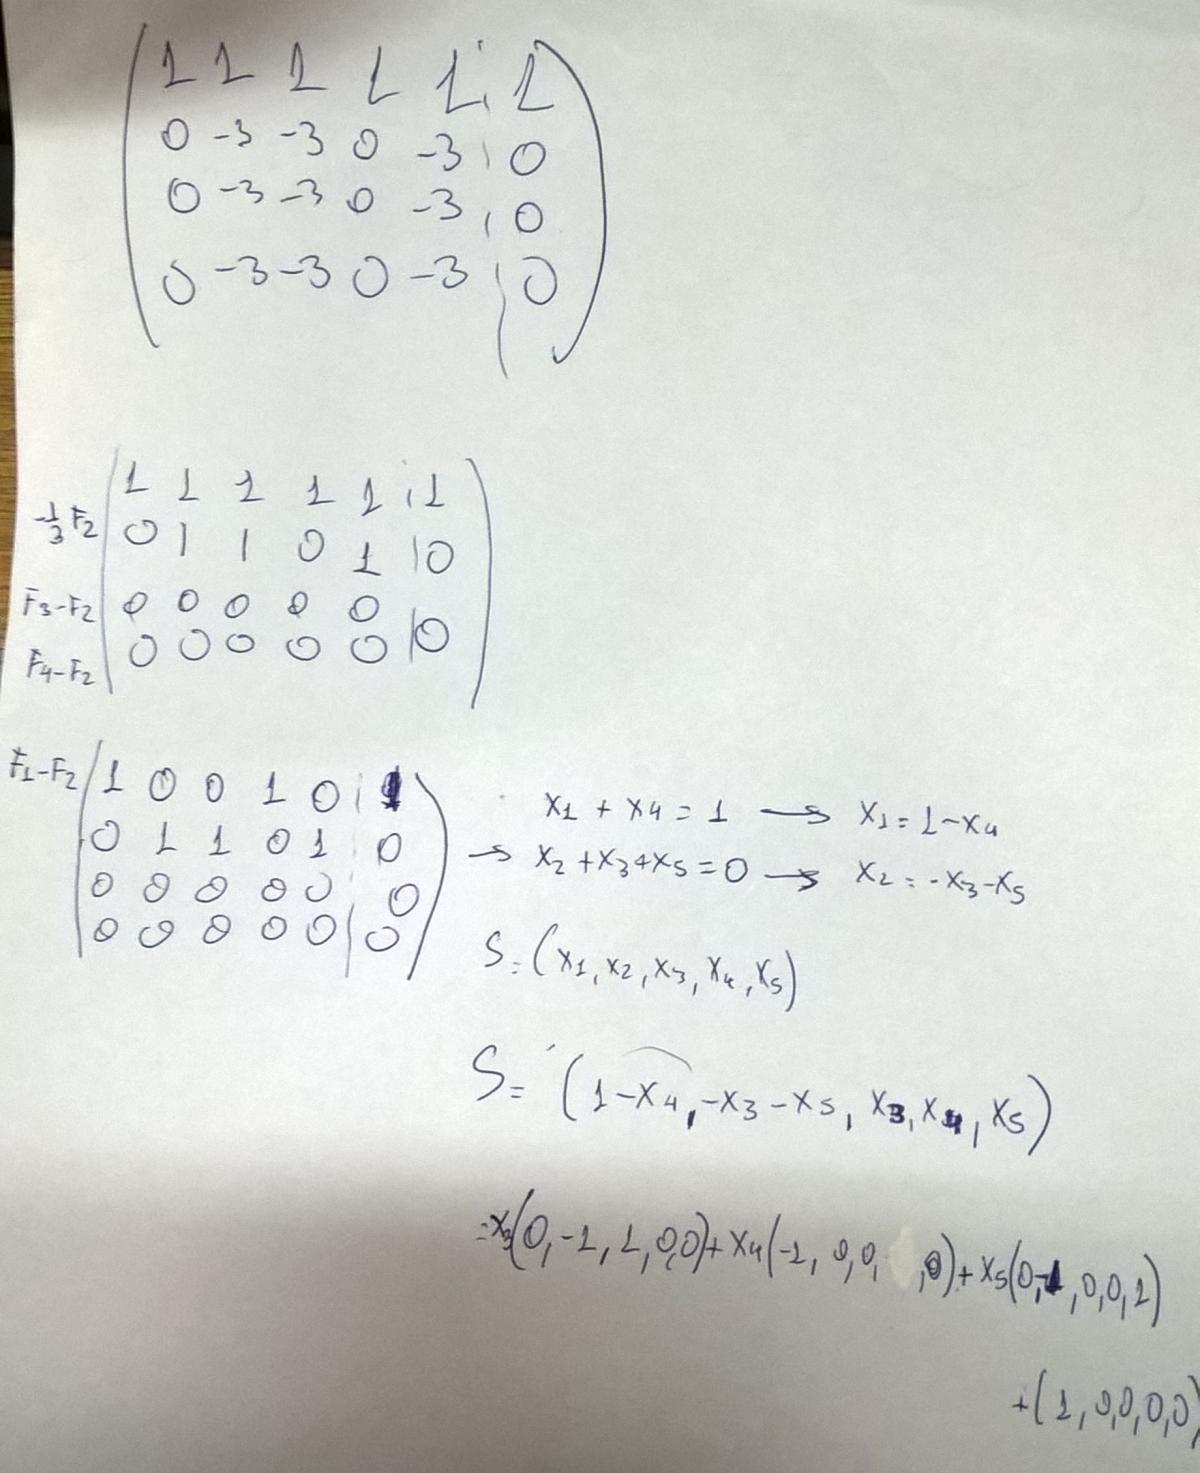 1 1 1 1 1 | 1
0 -3 -3 0 -3 | 0
0 -3 -3 0 -3 | 0
0 -3 -3 0 -3 | 0
1 1 1 1 1 | 1
-1/3 F2 0 1 1 0 1 | 0
F3-F2 0 0 0 0 0
F4-F2 0 0 0 0 0 | 0
F1-F2 1 0 0 1 0 | 1
0 1 1 0 1 | 0
0 0 0 0 0 | 0
0 0 0 0 0 | 0
x1 + x4 = 1 → x1 = 1-x4
→ x2 + x3 + x5 = 0 → x2 = -x3-x5
S = (x1, x2, x3, x4, x5)
S = (1-x4, -x3-x5, x3, x4, x5)
= x3(0,-1,1,0,0) + x4(-1,0,0, ,0) + x5(0,-1,0,0,1)
+(1,0,0,0,0)